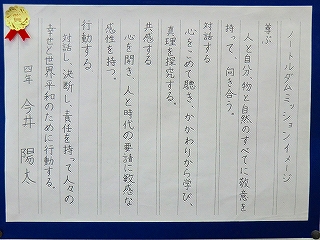 ノートルダムミッションイメージ
尊ぶ
人と自分、物と自然のすべてに敬意を
持って、向き合う。
対話する
心をこめて聴き、かかわりから学び、
真理を探究する。
共感する
心を開き、人と時代の要請に敏感な
感性を持つ。
行動する
対話し、決断し、責任を持って人々の
幸せと世界平和のために行動する。
四年 今井 陽太